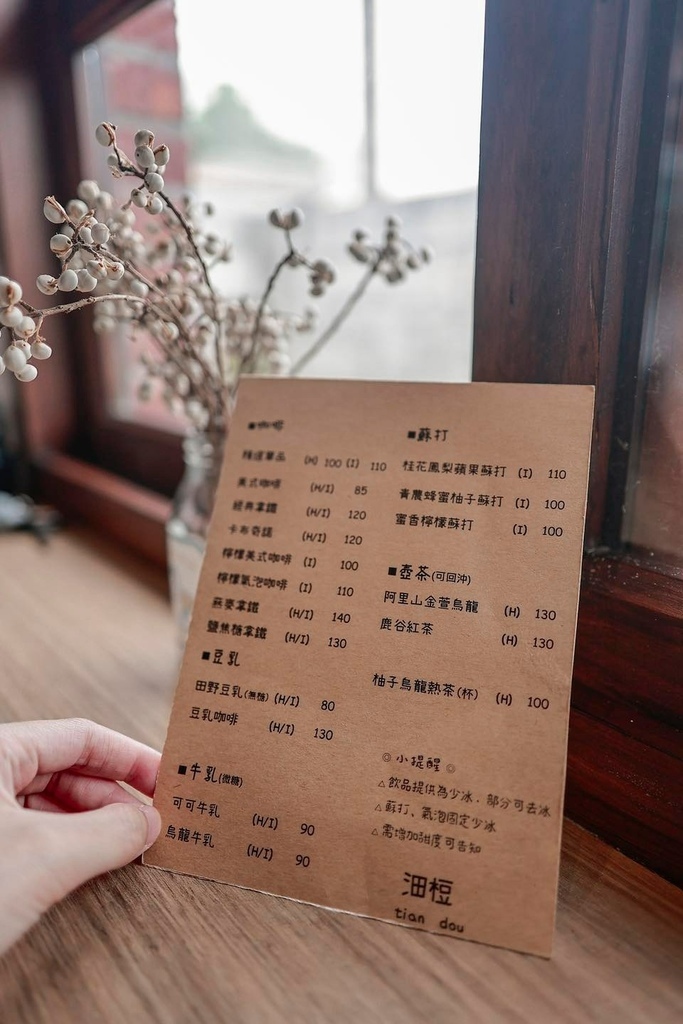 ■咖啡
精選單品 (H) 100 (I) 110
美式咖啡 (H/I) 85
經典拿鐵 (H/I) 120
卡布奇諾 (H/I) 120
檸檬美式咖啡 (I) 100
檸檬氣泡咖啡 (I) 110
燕麥拿鐵 (H/I) 140
鹽焦糖拿鐵 (H/I) 130
■豆乳
田野豆乳(無糖) (H/I) 80
豆乳咖啡 (H/I) 130
■牛乳(微糖)
可可牛乳 (H/I) 90
烏龍牛乳 (H/I) 90
■蘇打
桂花鳳梨蘋果蘇打 (I) 110
青農蜂蜜柚子蘇打 (I) 100
蜜香檸檬蘇打 (I) 100
■壺茶(可回沖)
阿里山金萱烏龍 (H) 130
鹿谷紅茶 (H) 130
柚子烏龍熱茶(杯) (H) 100
◎小提醒◎
△飲品提供為少冰，部分可去冰
△蘇打、氣泡固定少冰
△需增加甜度可告知
沺梪
tian dou